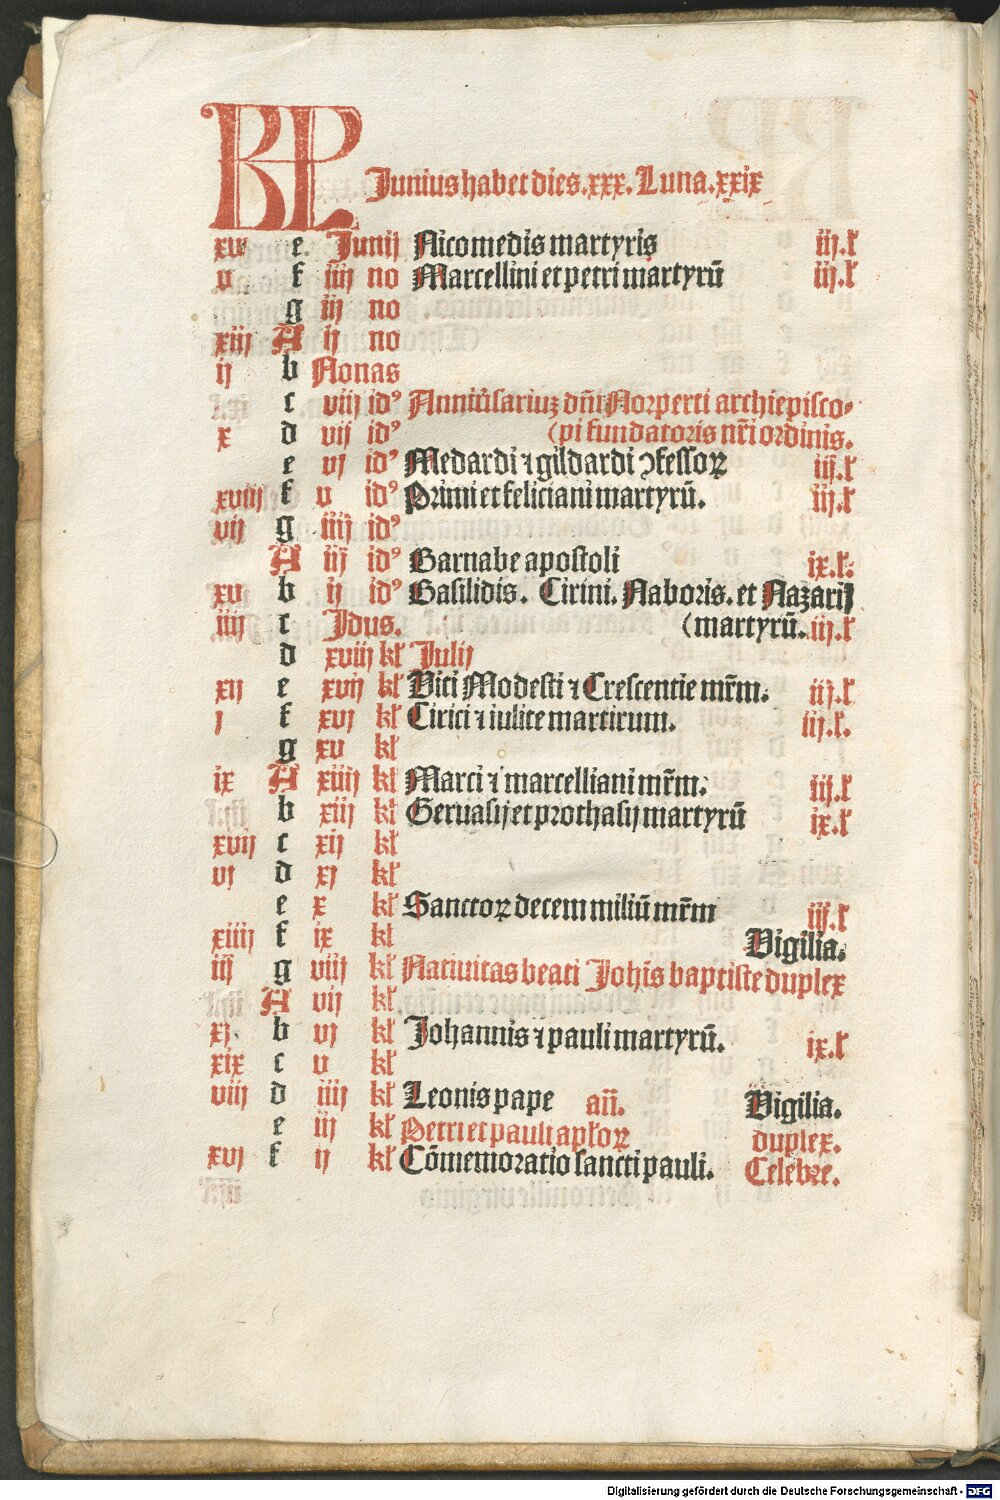 KL Junius habet dies.xxx.Luna.xxix
xv e. Junij Nicomedis martyris iij.ł
v f iiij no Marcellini et petri martyrū iij.ł
g iij no
xiij A ij no
ij b Nonas
c viij idꝰ Anniūsariuꝫ dn̄i Norperti archiepisco-
x d vij idꝰ (pi fundatoris nr̄i ordinis.
e vj idꝰ Medardi ⁊ gildardi ꝯfessoꝝ iij.ł
xviij f v idꝰ Primi et feliciani martyrū. iij.ł
vij g iiij idꝰ
A iij idꝰ Barnabe apostoli ix.ł.
xv b ij idꝰ Basilidis. Cirini. Naboris. et Nazarij
iiij c Jdus. (martyrū. iij.ł
d xviij kł Julij
xij e xvij kł Viti Modesti ⁊ Crescentie mr̄m. iij.ł
j f xvj kł Cirici ⁊ iulite martirum. iij.ł.
g xv kł
ix A xiiij kł Marci ⁊ marcelliani mr̄m. iij.ł
b xiij kł Geruasij et prothasij martyrū ix.ł
xvij c xij kł
vj d xj kł
e x kł Sanctoꝝ decem miliū mr̄m iij.ł
xiiij f ix kł Vigilia.
iij g viij kł Natiuitas beati Joh̄is baptiste duplex
A vij kł
xj b vj kł Johannis ⁊ pauli martyrū. ix.ł
xix c v kł
viij d iiij kł Leonis pape an̄. Vigilia.
e iij kł Petri et pauli apłoꝝ duplex.
xvj f ij kł Cōmemoratio sancti pauli. Celebre.
Digitalisierung gefördert durch die Deutsche Forschungsgemeinschaft - DFG